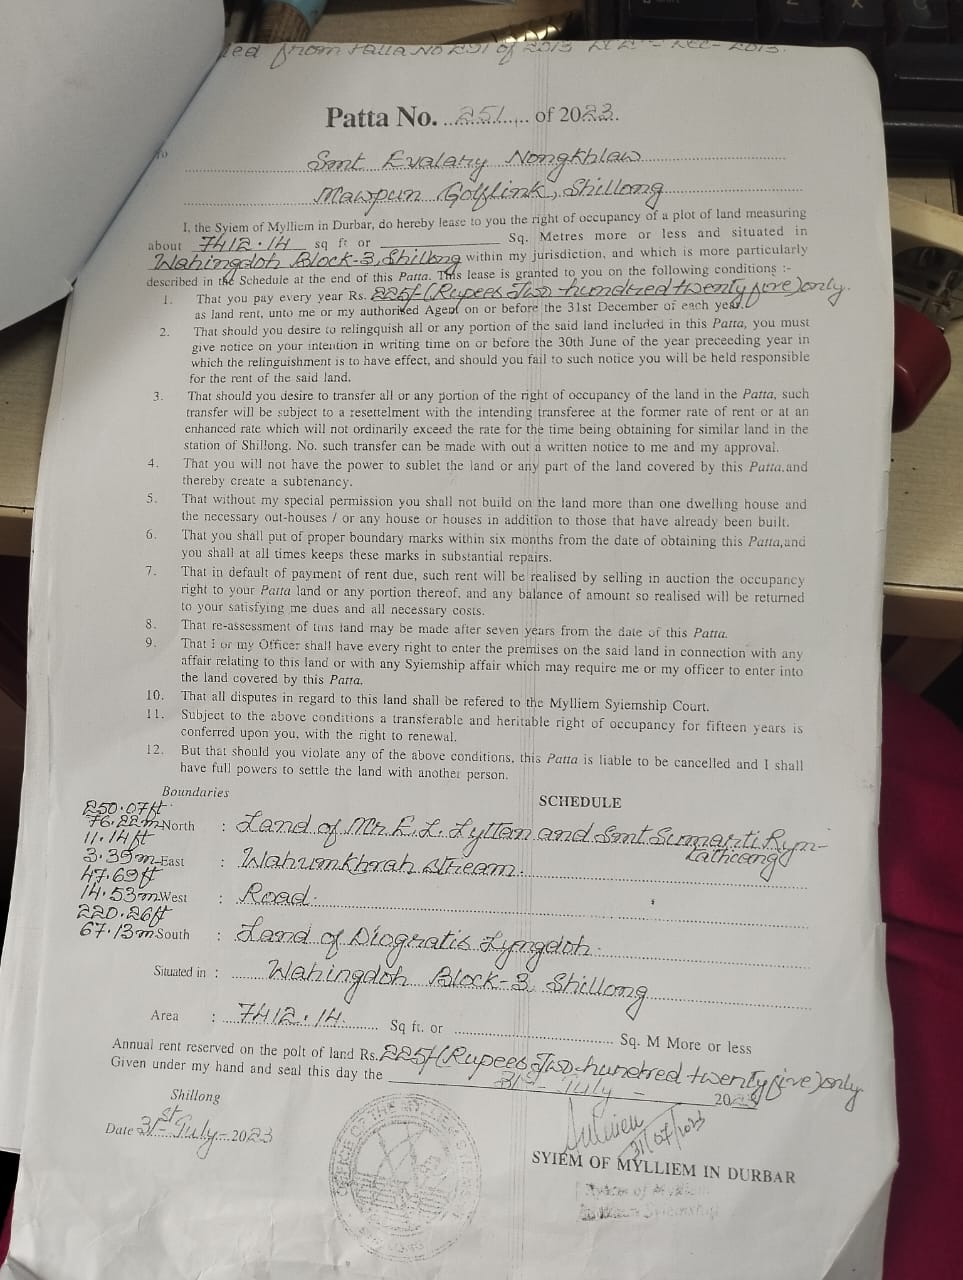 from Patta No 251 of 2013
Patta No. 251 of 2023.
To
Smt Evalary Nongkhlaw
Mawpun Golflink, Shillong
I, the Syiem of Mylliem in Durbar, do hereby lease to you the right of occupancy of a plot of land measuring
about 7412.14 sq ft or Sq. Metres more or less and situated in
Wahingdoh Block-3, Shillong within my jurisdiction, and which is more particularly
described in the Schedule at the end of this Patta. This lease is granted to you on the following conditions :-
1. That you pay every year Rs. 225/-(Rupees Two hundred twenty five) only.
as land rent, unto me or my authorised Agent on or before the 31st December of each year.
2. That should you desire to relingquish all or any portion of the said land included in this Patta, you must
give notice on your intention in writing time on or before the 30th June of the year preceeding year in
which the relinguishment is to have effect, and should you fail to such notice you will be held responsible
for the rent of the said land.
3. That should you desire to transfer all or any portion of the right of occupancy of the land in the Patta, such
transfer will be subject to a resettelment with the intending transferee at the former rate of rent or at an
enhanced rate which will not ordinarily exceed the rate for the time being obtaining for similar land in the
station of Shillong. No. such transfer can be made with out a written notice to me and my approval.
4. That you will not have the power to sublet the land or any part of the land covered by this Patta,and
thereby create a subtenancy.
5. That without my special permission you shall not build on the land more than one dwelling house and
the necessary out-houses / or any house or houses in addition to those that have already been built.
6. That you shall put of proper boundary marks within six months from the date of obtaining this Patta,and
you shall at all times keeps these marks in substantial repairs.
7. That in default of payment of rent due, such rent will be realised by selling in auction the occupancy
right to your Patta land or any portion thereof, and any balance of amount so realised will be returned
to your satisfying me dues and all necessary costs.
8. That re-assessment of this land may be made after seven years from the date of this Patta.
9. That i or my Officer shall have every right to enter the premises on the said land in connection with any
affair relating to this land or with any Syiemship affair which may require me or my officer to enter into
the land covered by this Patta.
10. That all disputes in regard to this land shall be refered to the Mylliem Syiemship Court.
11. Subject to the above conditions a transferable and heritable right of occupancy for fifteen years is
conferred upon you, with the right to renewal.
12. But that should you violate any of the above conditions, this Patta is liable to be cancelled and I shall
have full powers to settle the land with another person.
Boundaries
SCHEDULE
250.07ft
76.22m North : Land of Mr. E.L. Lyttan and Smt Sumarti Ryn-
tathiang
11.14ft
3.39m East : Wahumkhrah Stream.
47.69ft
14.53m West : Road.
220.26ft
67.13m South : Land of Diogratis Lyngdoh.
Situated in : Wahingdoh Block-3, Shillong
Area : 7412.14. Sq ft. or Sq. M More or less
Annual rent reserved on the polt of land Rs. 225/-(Rupees Two hundred twenty five) only
Given under my hand and seal this day the 31st July - 2023
Shillong
Date 31st July- 2023
31/07/2023
SYIEM OF MYLLIEM IN DURBAR